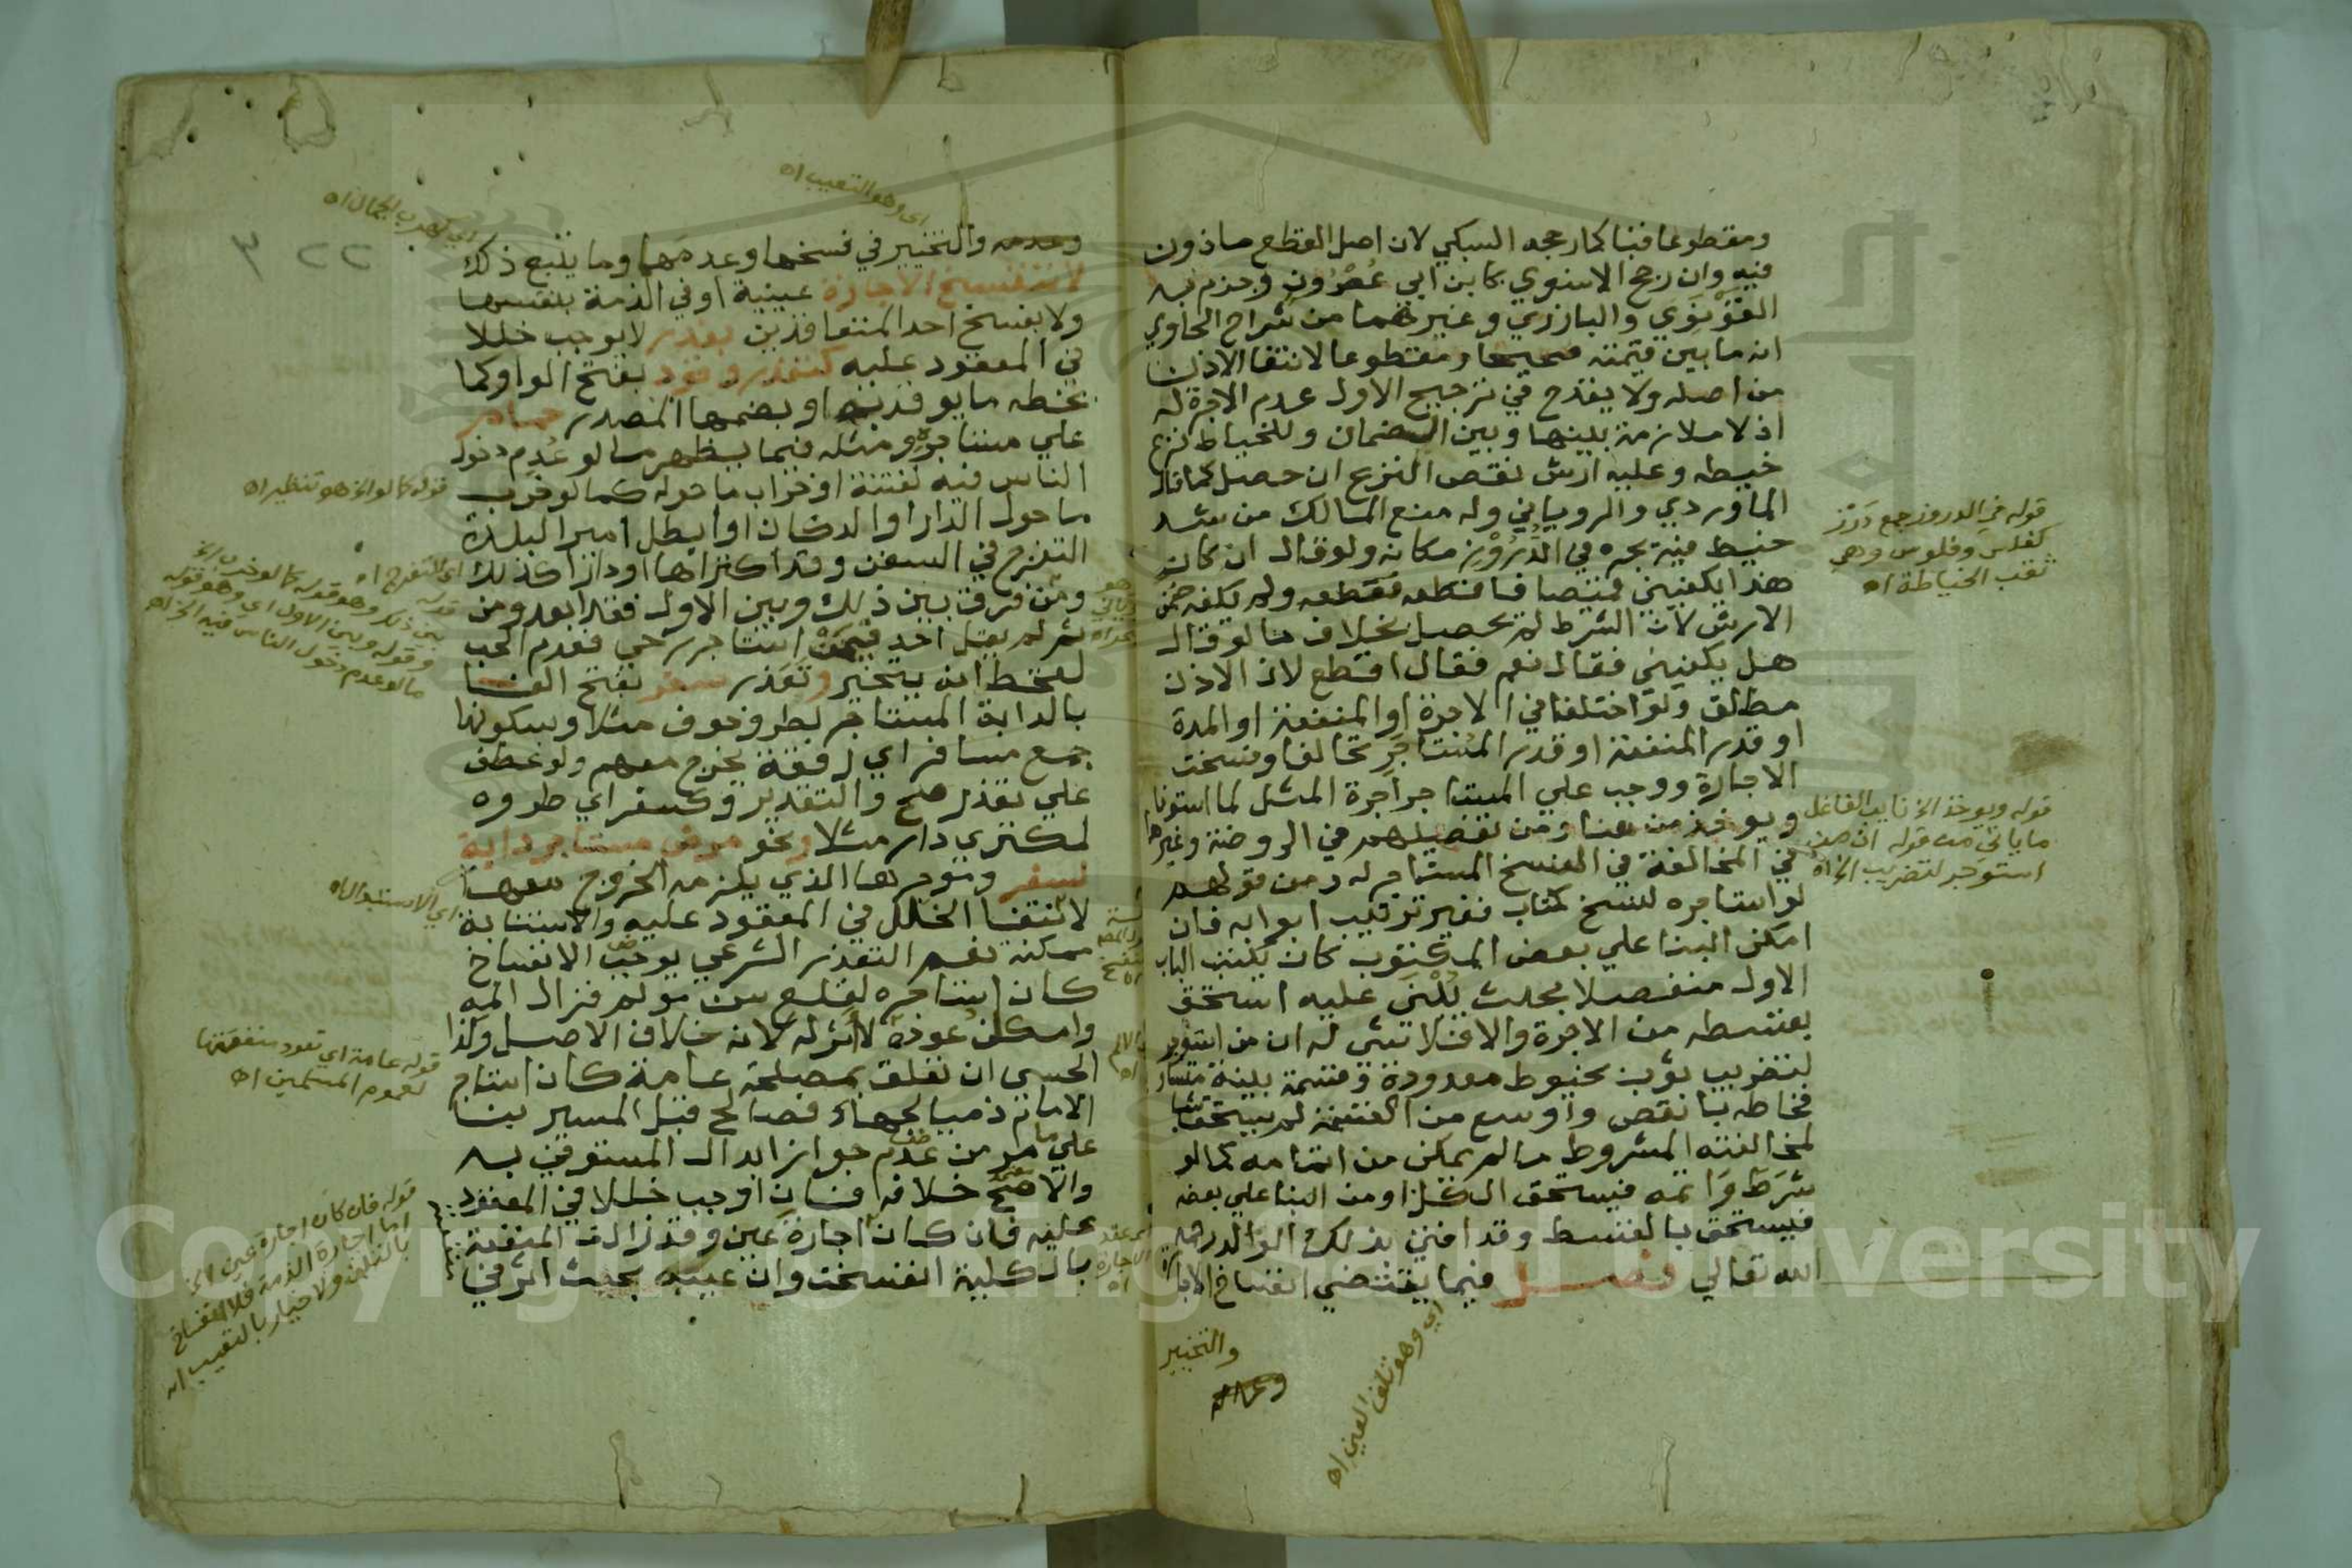 ومقطوعا قبا كما رجحه السبكي لان اصل القطع ماذون
فيه وان رجح الاسنوي كابن ابي عصرون وجزم به
القونوي والبارزي وغيرهما من شراح الحاوي
انه ما بين قيمته صحيحا ومقطوعا لانتفا الاذن
من اصله ولا يقدح في ترجيح الاول عدم الاجرة له
اذ لا ملازمة بينها وبين الضمان وللخياط نزع
خيطه وعليه ارش نقص النزع ان حصل كما قال
الماوردي والروياني وله منع المالك من شد
خيط فيه يجره في الدُرُوْز مكانه ولو قال ان كان
هذا يكفيني قميصا فاقطعه فقطعه ولم يكفه ضمن
الارش لان الشرط لم يحصل بخلاف ما لو قال
هل يكفيني فقال نعم فقال اقطع لان الاذن
مطلق ولو اختلفا في الاجرة او المنفعة او المدة
او قدر المنفعة او قدر المستاجر تحالفا وفسخت
الاجارة ووجب علي المستاجر اجرة المثل لما استوفاه
ويوخذ من هنا ومن تفصيلهم في الروضة وغيرها
في المخالفة في النسخ المستاجر له ومن قولهم
لو استاجره لنسخ كتاب فغير ترتيب ابوابه فان
امكن البنا علي بعض المكتوب كان يكتب الباب
الاول منفصلا بحيث يُبْنَى عليه استحق
بقسطه من الاجرة والا فلا شي له ان من استوجر
لتضريب ثوب بخيوط معدودة وقسمة بينة متساوية
فخاطه بانقص واوسع من القسمة لم يستحق شيا
لمخالفته المشروط ما لم يمكن من اتمامه كما لو
شرط واتمه فيستحق الكل او من البنا علي بعضه
فيستحق بالقسط وقد افتي بذلك الوالد رحمه
الله تعالي فصل فيما يقتضي انفساخ الاجارة
والتخيير
اي وهو تلف العين اه
قوله في الدروز جمع دَرْز
كفلس وفلوس وهي
ثقب الخياطة اه
قوله ويوخذ الخ نايب الفاعل
ما ياتي من قوله ان من
استوجر لتضريب الخ اه
اي وهو التعييب اه
اي كهرب الجمال اه
والتخيير في فسخها وعدمها وما يتبع ذلك
لا تنفسخ الاجارة عينية او في الذمة بنفسها
ولا بفسخ احد المتعاقدين بعذر لا يوجب خللا
في المعقود عليه كتعذر وقود بفتح الواو كما
بخطه ما يوقد به او بضمها المصدر حمام
علي مستاجره ومثله فيما يظهر ما لو عُدِم دخول
الناس فيه لفتنة او خراب ما حوله كما لو خرب
ما حول الدار او الدكان او ابطل امير البلدة
التفرج في السفن وقد اكتراها او دارا كذلك
ومن فرق بين ذلك وبين الاول فقد ابعد ومن
ثم لم يقل احد فيمن استاجر رحي فعدم الحب
لقحط انه يتخير وتعذر سفر بفتح الفا
بالدابة المستاجر لطرو خوف مثلا وسكونها
جمع مسافر اي رفقة يخرج معهم ولو عطف
علي تعذر صح والتقدير وكسفر اي طروه
لمكتري دار مثلا ونحو مرض مستاجر دابة
لسفر وموجرها الذي يلزمه الخروج معها
لانتفا الخلل في المعقود عليه والاستنابة
ممكنة نعم التعذر الشرعي يوجب الانفساخ
كان استاجره لقلع سن مولم فزال المه
وامكان عوده لا اثر له لانه خلاف الاصل وكذا
الحسي ان تعلق بمصلحة عامة كان استاجر
الامام ذميا لجهاد فصالح قبل المسير بنا
علي ما مر من عدم جواز ابدال المستوفي به
والاصح خلافه فان اوجب خللا في المعقود
عليه فان كان اجارة عين وقد زالت المنفعة
بالكلية انفسخت وان عيبه بحيث اثر في
قوله كما لو الخ هو تنظير اه
اي التفرج اه
قوله
بين ذلك وهو قوله كما لو خرب الخ
وقوله وبين الاول اي وهو قوله
ما لو عدم دخول الناس فيه الخ اه
اي الاستيلا اه
قوله عامة اي تعود منفعتها
لعموم المسلمين اه
قوله فان كان اجارة عين الخ
اما اجارة الذمة فلا انفساخ
بالتلف ولا خيار بالتعييب اه
Copyright © King Saud University